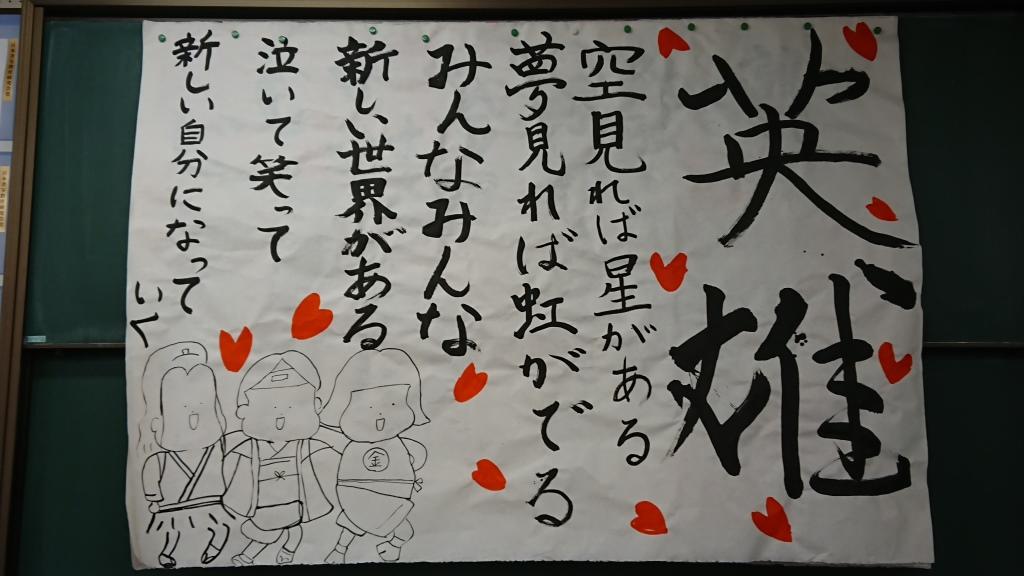 英雄
空見れば星がある
夢見れば虹がでる
みんなみんな
新しい世界がある
泣いて笑って
新しい自分になって
いく
金